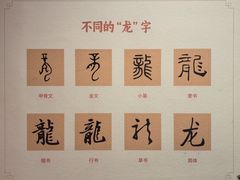 不同的“龙”字
甲骨文 金文 小篆 隶书
楷书 行书 草书 简体